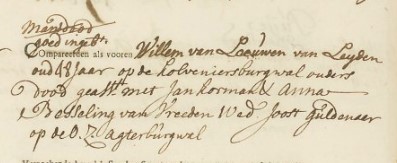 Man dood
goed ingeb:
Compareeren als vooren Willem van Leeuwen van Leyden
oud 48 Jaar op de kolveniersburgwal ouders
dood geass: met Jan kormak & Anna
Bosseling van Vreeden Wed. Joost Guldenaer
op de O. Z. Agterburgwal